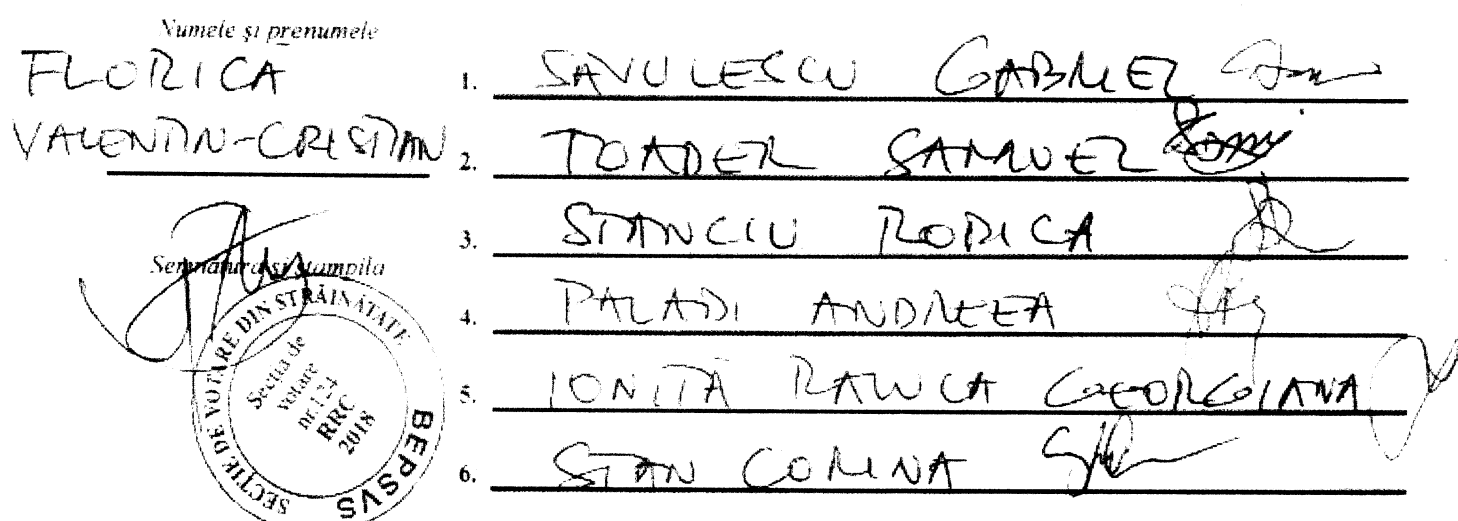 Numele și prenumele
FLORICĂ
VALENTIN-CRISTIAN
Semnătura și ștampila
SECȚIE DE VOTARE DIN STRĂINĂTATE
BEPSVS
Secția de
votare
nr. 124
RRC
2018
1. SAVULESCU GABRIEL
2. TOADER SAMUEL
3. STANCIU RODICA
4. PALADI ANDREEA
5. IONIȚĂ RALUCA GEORGIANA
6. STAN CORINA